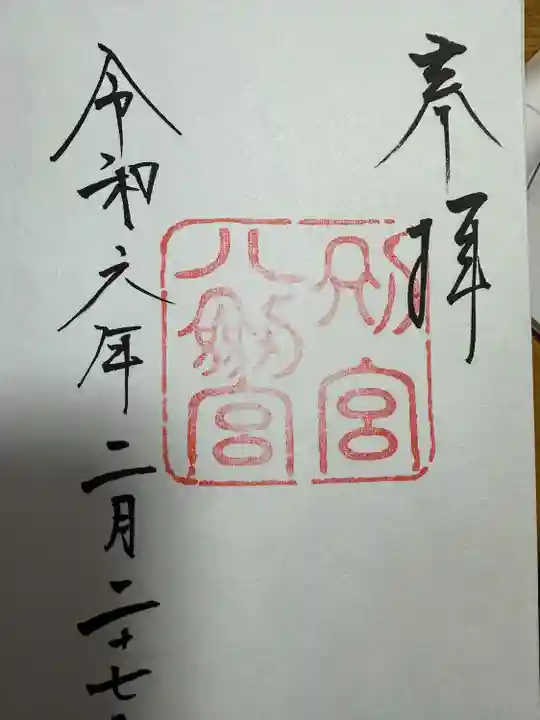 奉拝
別宮
八幡宮
令和六年二月二十七日